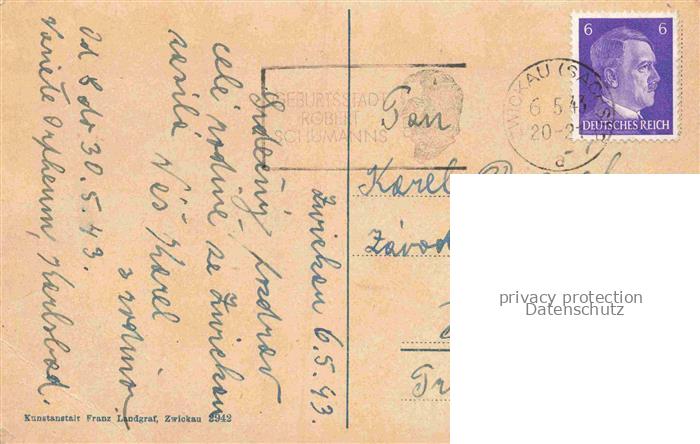 Zwickau 6.5.43.
Srdečný pozdrav
celé rodině ze Zwickau
zasílá Váš Karel
s rodinou
Od 8 do 30.5.43.
Varieté Orpheum, Karlsbad.
Kunstanstalt Franz Landgraf, Zwickau 2942
GEBURTSSTADT
ROBERT
SCHUMANNS
ZWICKAU (SACHS)
6.5.43
20-2
a
6 6
DEUTSCHES REICH
Pan
Karel
Závod
Tr
privacy protection
Datenschutz